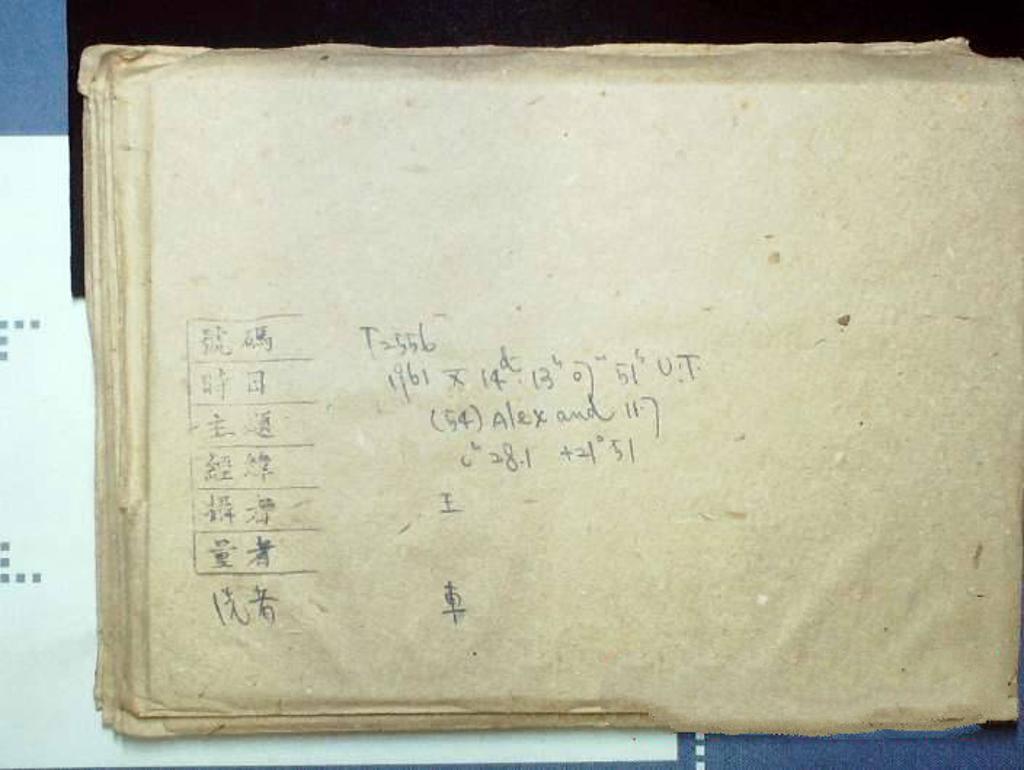 號碼 T2556
時日 1961 X 14ᵈ 13ʰ 07ᵐ 51ˢ U.T.
主題 (54) Alexand 11.7
經緯 0ʰ 28.1 +21° 51
攝者 王
量者
洗者 車